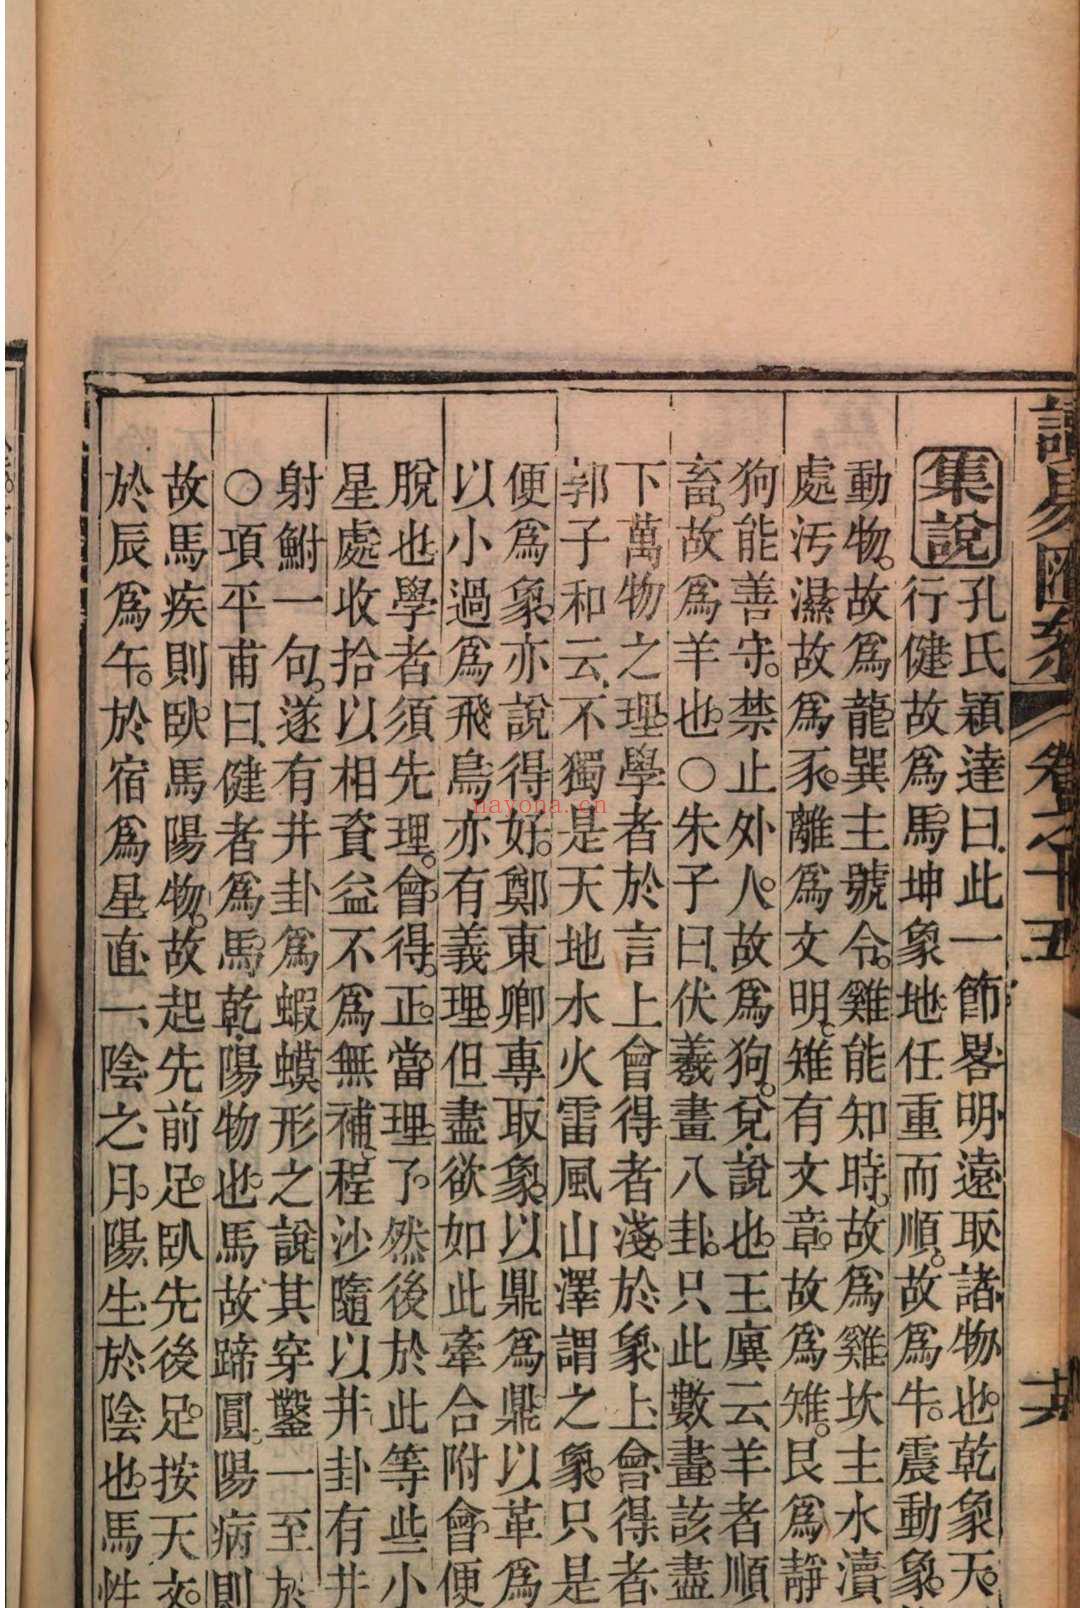 讀易匯參 卷之十五 十六
集說
孔氏穎達曰此一節畧明遠取諸物也乾象天
行健故爲馬坤象地任重而順故爲牛震動象
動物故爲龍巽主號令雞能知時故爲雞坎主水瀆
處污濕故爲豕離爲文明雉有文章故爲雉艮爲靜
狗能善守禁止外人故爲狗兌說也王廙云羊者順
畜故爲羊也○朱子曰伏羲畫八卦只此數畫該盡
下萬物之理學者於言上會得者淺於象上會得者
郭子和云不獨是天地水火雷風山澤謂之象只是
便爲象亦說得好鄭東卿專取象以鼎爲鼎以革爲
以小過爲飛鳥亦有義理但盡欲如此牽合附會便
脫也學者須先理會得正當理了然後於此等些小
星處收拾以相資益不爲無補程沙隨以井卦有井
射鮒一句遂有井卦爲蝦蟆形之說其穿鑿一至於
○項平甫曰健者爲馬乾陽物也馬故蹄圓陽病則
故馬疾則臥馬陽物故起先前足臥先後足按天文
於辰爲午於宿爲星直一陰之月陽生於陰也馬性
nayona.cn